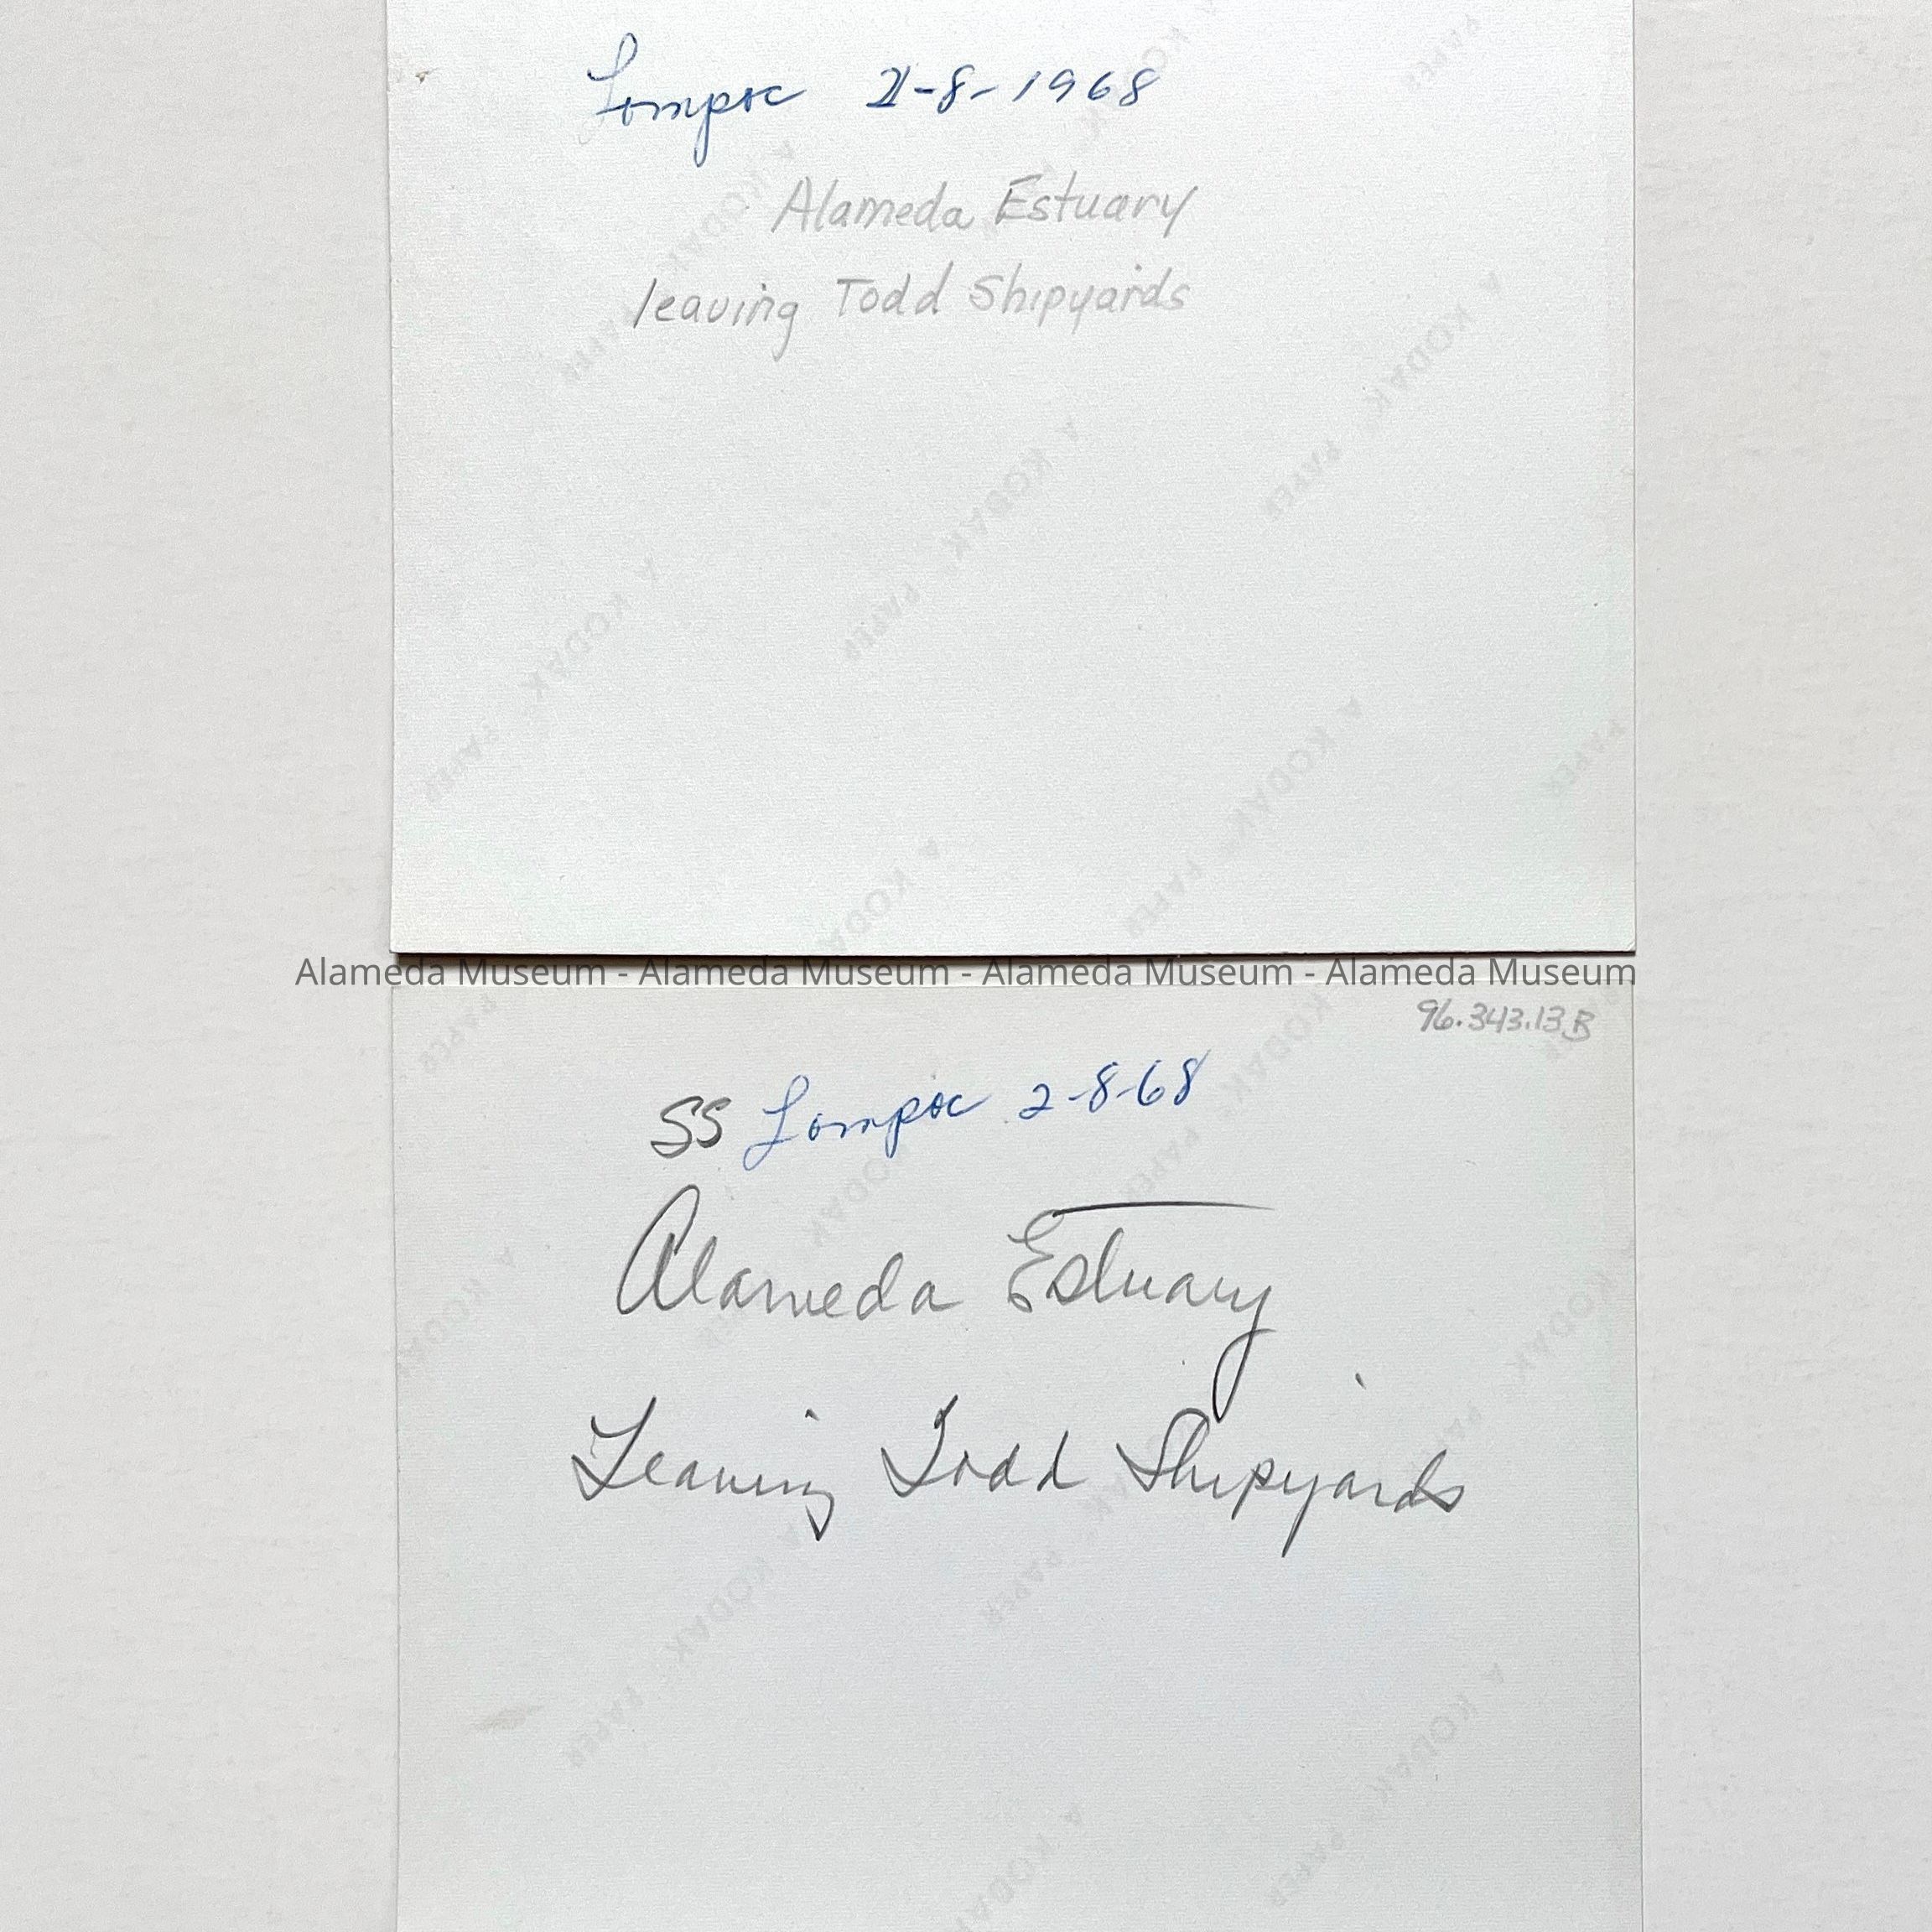 Lompoc 2-8-1968
Alameda Estuary
leaving Todd Shipyards
Alameda Museum - Alameda Museum - Alameda Museum - Alameda Museum
96.343.13B
SS Lompoc 2-8-68
Alameda Estuary
Leaving Todd Shipyards
A KODAK PAPER